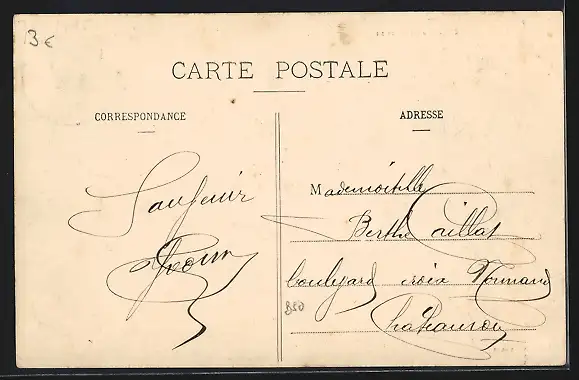 3 €
CARTE POSTALE
CORRESPONDANCE
ADRESSE
Souvenir
Mademoiselle
Berthe Caillat
boulevard croix Normand
B50
Châteauroux